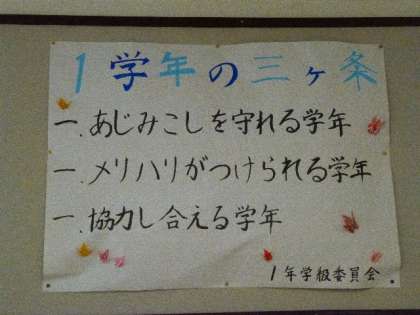 1学年の三ヶ条
一.あじみこしを守れる学年
一.メリハリがつけられる学年
一.協力し合える学年
1年学級委員会